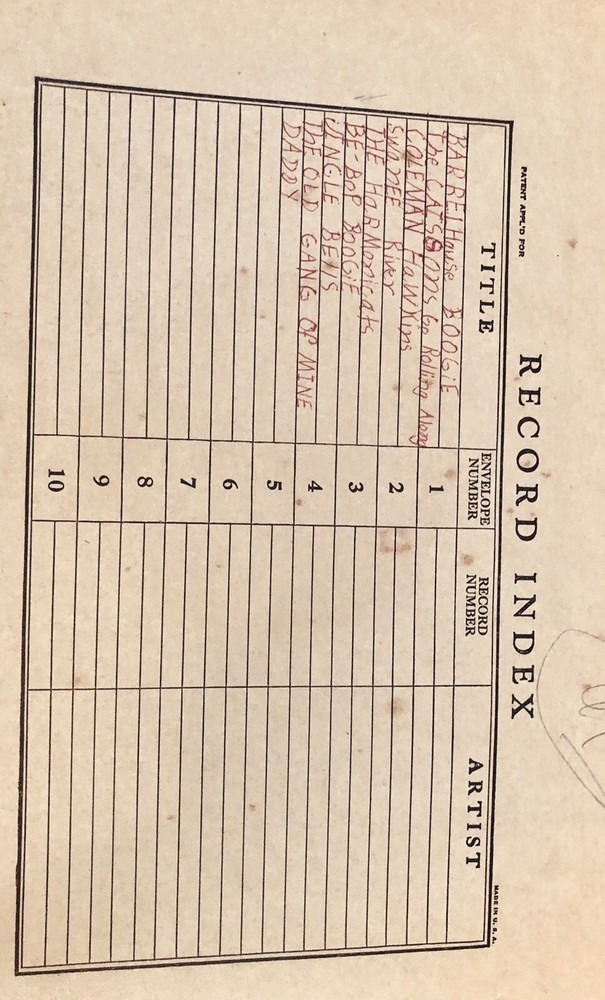 RECORD INDEX
PATENT APPL'D FOR
MADE IN U. S. A.
TITLE
ENVELOPE NUMBER
RECORD NUMBER
ARTIST
BARRElHouse BOOGiE
The CAissons Go Rolling Along
COLEMAN HaWKins
SWANEE River
THE HaRMonicats
BE-BOP BOOGiE
JiNGLE BEllS
ThE OLD GANG OF MINE
DADDY
1
2
3
4
5
6
7
8
9
10